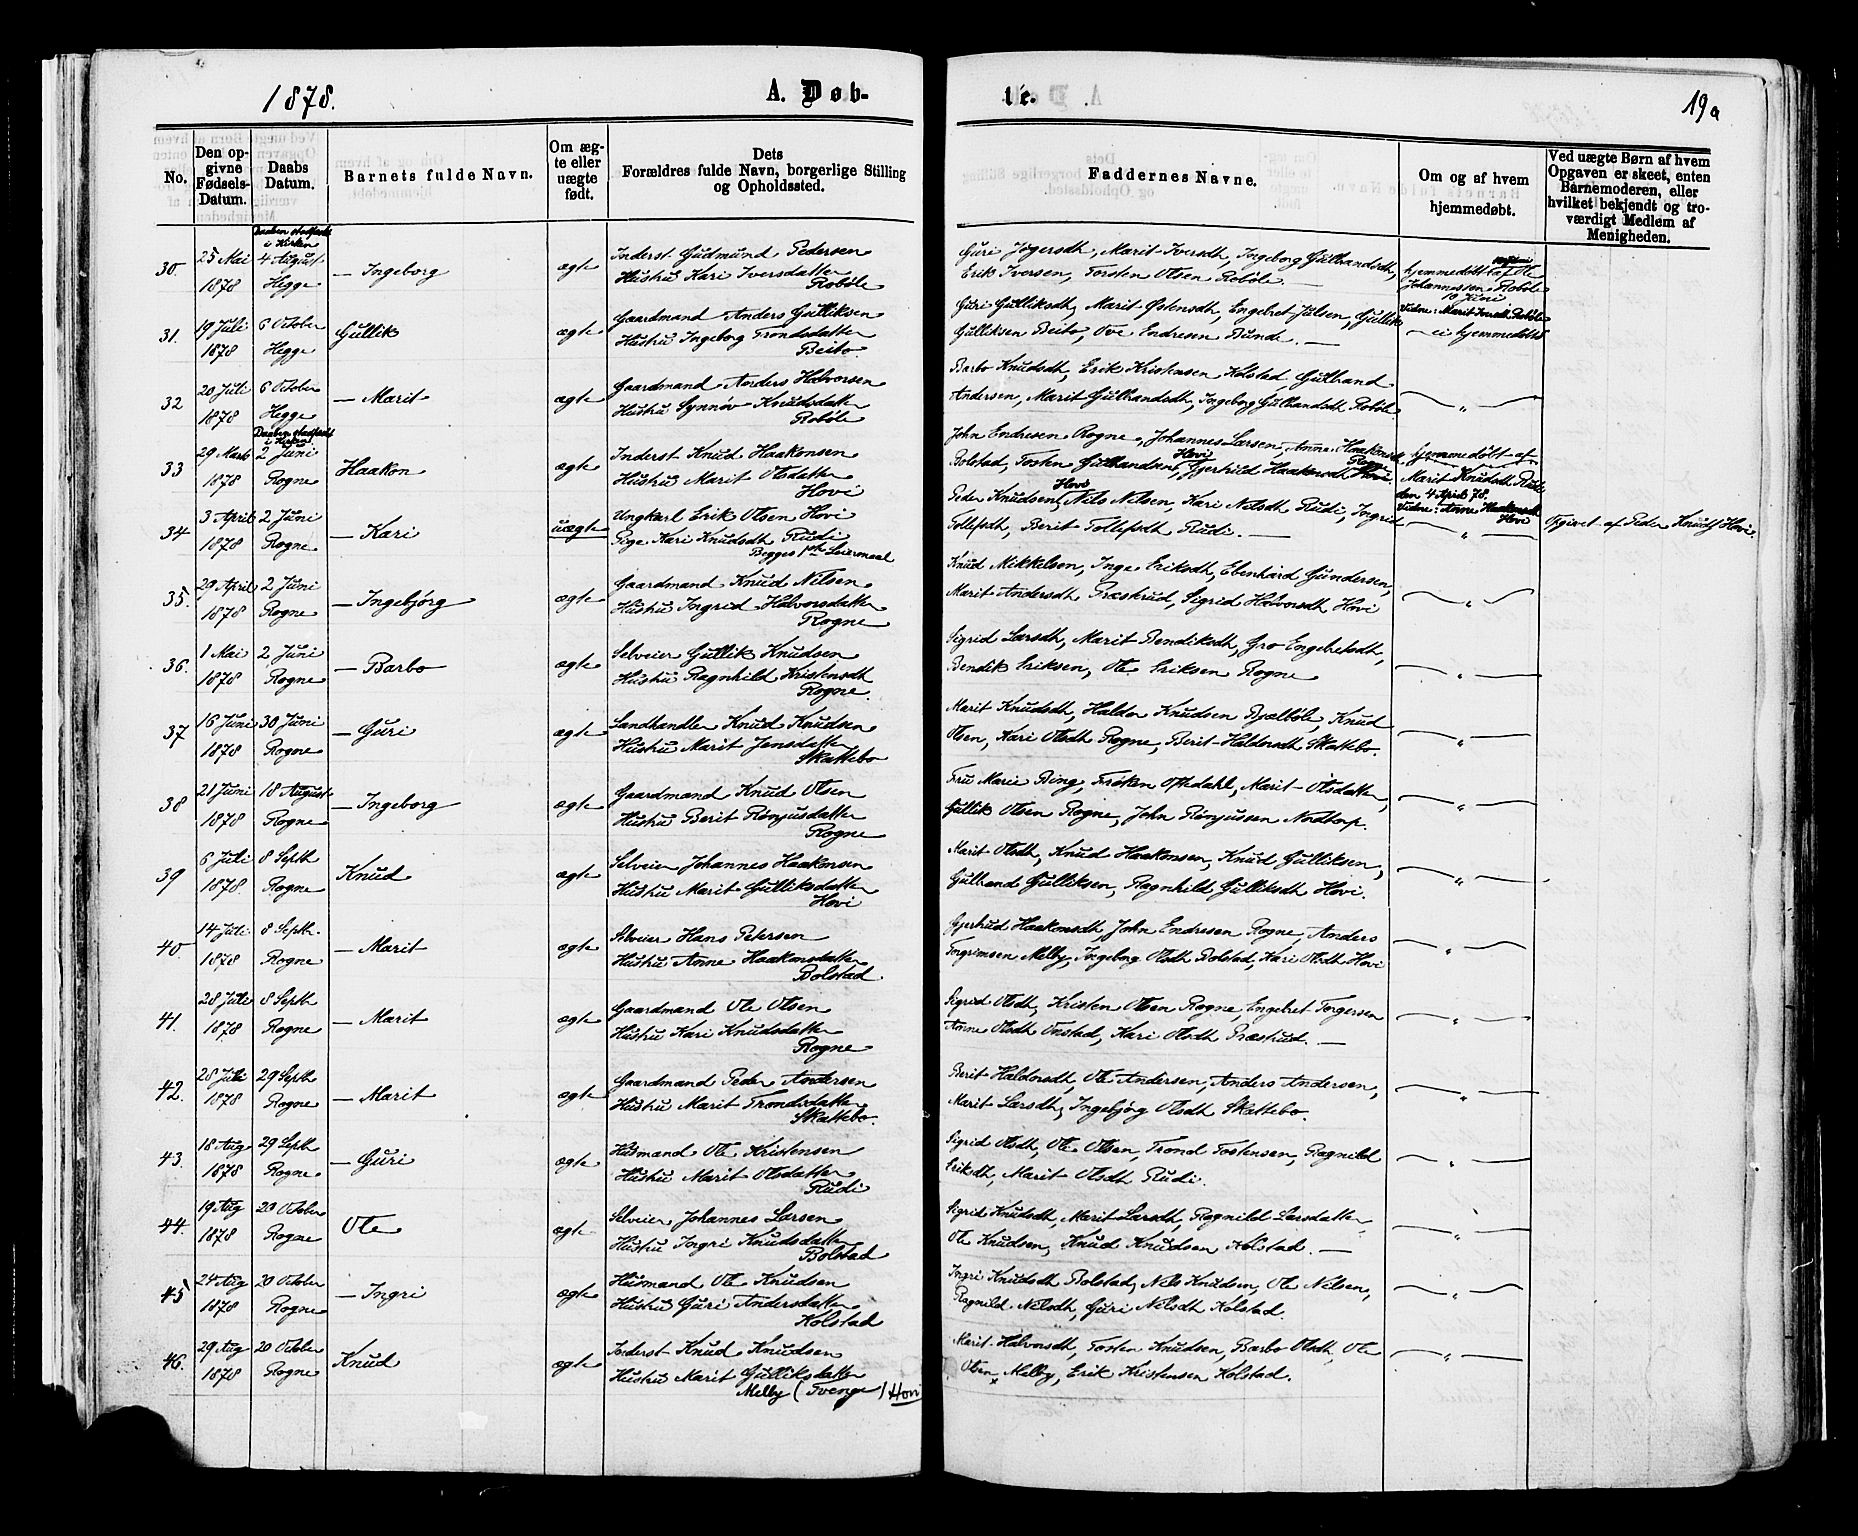 1878.
A. Døb-
te.
19a
No.
Den op-
givne
Fødsels-
Datum.
Daabs
Datum.
Barnets fulde Navn.
Om æg-
te eller
uægte
født.
Dets
Forældres fulde Navn, borgerlige Stilling
og Opholdssted.
Faddernes Navne.
Om og af hvem
hjemmedøbt.
Ved uægte Børn af hvem
Opgaven er skeet, enten
Barnemoderen, eller
hvilket bekjendt og tro-
værdigt Medlem af
Menigheden.
30.
25 Mai
1878
Daaben stadfæst
i Kirken
4 August
Hegge
— Ingeborg
ægte
Inderst Gudmund Pedersen
Hustru Kari Iversdatter
Robøle
Guri Jøgersdt, Marit Iversdt, Ingeborg Gulbrandsdt,
Erik Iversen, Torsten Olsen Robøle. —
hjemmedøbt af Ole
Johannessen Robøle
10 Juni
Vidne: Marit Iversdt Robøle
31.
19 Juli
1878
6 October
Hegge
Gullik
ægte
Gaardmand Anders Gulliksen
Hustru Ingeborg Trondsdatter
Beito.
Guri Gulliksdt, Marit Østensdt, Engebret Juulsen, Gullik
Gulliksen Beito, Ove Endresen Bunde. —
— ei hjemmedøbt
32
20 Juli
1878
6 October
Hegge
— Marit
ægte
Gaardmand Anders Halvorsen
Hustru Synnøv Knudsdatter
Robøle
Barbo Knudsdt, Erik Kristensen Kolstad, Gulbrand
Andersen, Marit Gulbrandsdt, Ingeborg Gulbrandsdt Robøle
— „ —
33
29 Marts
1878
Daaben stadfæst
i Kirken
2 Juni
Rogne
Haakon
ægte
Inderst Knud Haakonsen
Hustru Marit Olsdatter
Hovi
John Endresen Rogne, Johannes Larsen, Anne Haakonsdt
Bolstad, Tosten Gulbrandsen Hovi, Gjertrud Haakonsdt Rogne
hjemmedøbt af
Marit Knudsdt Rudi
den 4 April 78.
Vidne: Anne Haakonsdt
Hovi
34
3 April
1878
2 Juni
Rogne
— Kari
uægte
Ungkarl Erik Olsen Hovi
Pige Kari Knudsdt Rudi
Begges 1ste Leiermaal
Peder Knudsen Hovi, Nils Nilsen, Kari Nilsdt Rudi, Ingrid
Tollefsdt, Berit Tollefsdt Rudi. —
— „ —
Opgivet af Peder Knuds. Hovi.
35.
29 April
1878
2 Juni
Rogne
— Ingebjørg
ægte
Gaardmand Knud Nilsen
Hustru Ingrid Halvorsdatter
Rogne
Knud Mikkelsen, Inge Eriksdt, Ebenhard Gundersen,
Marit Andersdt Præstrud, Sigrid Halvorsdt Hovi
— „ —
36.
1 Mai
1878
2 Juni
Rogne
— Barbo
ægte
Selveier Gullik Knudsen
Hustru Ragnhild Kristensdt
Rogne.
Sigrid Larsdt, Marit Bendiksdt, Gro Engebretsdt,
Bendik Eriksen, Ole Eriksen Rogne
— „ —
37
16 Juni
1878
30 Juni
Rogne
— Guri
ægte
Landhandler Knud Knudsen
Hustru Marit Jensdatter
Skattebo
Marit Knudsdt, Haldor Knudsen Bjælbøle, Knud
Olsen, Kari Olsdt Rogne, Berit Haldorsdt Skattebo.
— „ —
38
21 Juni
1878
18 August
Rogne
— Ingeborg
ægte
Gaardmand Knud Olsen
Hustru Berit Rønjusdatter
Rogne
Fru Marie Bing, Frøken Oftedahl, Marit Olsdatter,
Gullik Olsen Rogne, John Rønjussen Nordtorp.
— „ —
39
6 Juli
1878.
8 Septb
Rogne
Knud
ægte
Selveier Johannes Haakonsen
Hustru Marit Gulliksdatter
Hovi
Marit Olsdt, Knud Haakonsen, Knud Gulliksen,
Gulbrand Gulliksen, Ragnhild Gulliksdt Hovi.
— „ —
40.
14 Juli
1878
8 Septb.
Rogne
— Marit
ægte
Selveier Hans Petersen
Hustru Anne Haakonsdatter
Bolstad.
Gjertrud Haakonsdt, John Endresen Rogne, Anders
Torgrimsen Melby, Ingeborg Olsdt Bolstad, Kari Olsdt Hovi
— „ —
41.
28 Juli
1878.
8 Septb
Rogne
— Marit
ægte
Gaardmand Ole Olsen
Hustru Kari Knudsdatter
Rogne
Sigrid Olsdt, Kristen Olsen Rogne, Engebret Torgersen
Anne Olsdt Onstad, Kari Olsdt Præstrud. —
— „ —
42.
28 Juli
1878
29 Septb
Rogne
— Marit
ægte
Gaardmand Peder Andersen
Hustru Marit Trondsdatter
Skattebo.
Berit Haldorsdt, Ole Andersen, Anders Andersen,
Marit Larsdt, Ingebjørg Olsdt Skattebo.
— „ —
43.
18 Aug
1878
29 Septb
Rogne
— Guri
ægte
Husmand Ole Kristensen
Hustru Marit Olsdatter
Rudi
Sigrid Olsdt, Ole Olsen, Trond Tostensen, Ragnild
Eriksdt, Marit Olsdt Rudi.
— „ —
44.
19 Aug
1878
20 October
Rogne
Ole
ægte.
Selveier Johannes Larsen
Hustru Ingri Knudsdatter
Bolstad
Sigrid Knudsdt, Marit Larsdt, Ragnild Larsdatter,
Ole Knudsen, Knud Knudsen Kolstad. —
— „ —
45
24 Aug
1878
20 October
Rogne
— Ingri
ægte
Husmand Ole Knudsen
Hustru Guri Andersdatter
Kolstad
Ingri Knudsdt Bolstad, Nils Knudsen, Ole Nilsen,
Ragnild Nilsdt, Guri Nilsdt Kolstad.
— „ —
46.
29 Aug
1878
20 October
Rogne
Knud
ægte
Inderst Knud Knudsen
Hustru Marit Gulliksdatter
Melby (Tvenge) Hovi
Marit Halvorsdt, Tosten Knudsen, Barbo Olsdt, Ole
Olsen Melby, Erik Kristensen Kolstad.
— „ —